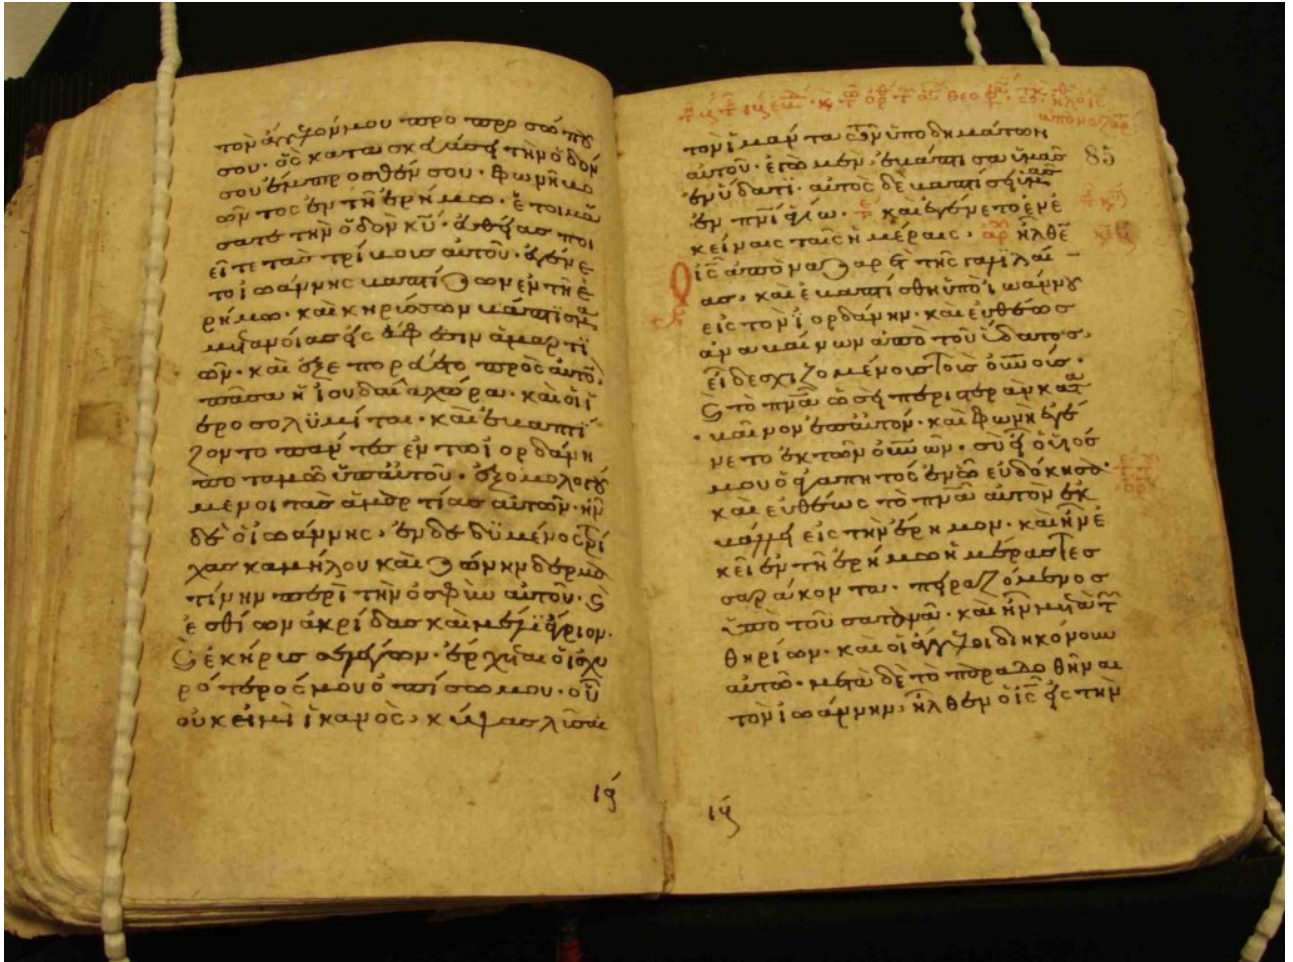 τὸν ἄγγελόν μου προ προσώπου
σου· ὃς κατασκευάσει τὴν ὁδόν
σου ἔμπροσθέν σου· φωνὴ βο
ῶντος ἐν τῆ ἐρήμω· ἑτοιμά
σατε τὴν ὁδὸν κυ· εὐθείας ποι
εῖτε τὰς τρίβους αὐτοῦ· ἐγένε
το ἰωάννης βαπτίζων ἐν τῆ ἐ
ρήμω· καὶ κηρύσσων βάπτισμα
μετανοίας εἰς ἄφεσιν ἁμαρτι
ῶν· καὶ ἐξεπορεύετο πρὸς αὐτὸν
πᾶσα ἡ ἰουδαία χώρα· καὶ οἱ ἱ
εροσολυμίται· καὶ ἐβαπτί
ζοντο πάντες ἐν τῶ ἰορδάνη
ποταμῶ ὑπ' αὐτοῦ· ἐξομολογού
μενοι τὰς ἁμαρτίας αὐτῶν· ἦν
δὲ ὁ ἰωάννης· ἐνδεδυμένος τρί
χας καμήλου καὶ ζώνην δερμα
τίνην περὶ τὴν ὀσφὺν αὐτοῦ· καὶ
ἐσθίων ἀκρίδας καὶ μέλι ἄγριον·
καὶ ἐκήρισσε λέγων· ἔρχεται ὁ ἰσχυ
ρότερός μου ὀπίσω μου· οὗ
οὐκ εἰμὶ ἱκανὸς· κύψας λῦσαι
ιϛ
τὸν ἱμάντα τῶν ὑποδημάτων
αὐτοῦ· ἐγὼ μὲν ἐβάπτισα ὑμᾶς
85
ἐν ὕδατι· αὐτὸς δὲ βαπτίσει ὑμᾶς
ἐν πνι ἁγίω· καὶ ἐγένετο ἐν ἐ
κείναις ταῖς ἡμέραις· ἦλθεν
ὁ ις ἀπὸ ναζαρὲτ τῆς γαλιλαί
ας· καὶ ἐβαπτίσθη ὑπὸ ἰωάννου
εἰς τὸν ἰορδάνην· καὶ εὐθέως
ἀναβαίνων ἀπὸ τοῦ ὕδατος·
εἶδε σχιζομένους τοὺς οὐνους·
καὶ τὸ πνα ὡσεὶ περιστερὰν κατα
βαῖνον ἐπ' αὐτόν· καὶ φωνὴ ἐγέ
νετο ἐκ τῶν οὐνων· σὺ εἶ ὁ υἱός
μου ὁ ἀγαπητός ἐν ὧ εὐδόκησα·
καὶ εὐθέως τὸ πνα αὐτὸν ἐκ
βάλλει εἰς τὴν ἔρημον· καὶ ἦν ἐ
κεῖ ἐν τῆ ἐρήμω ἡμέρας τες
σαράκοντα· πειραζόμενος
ὑπὸ τοῦ σατανᾶ· καὶ ἦν μετὰ τῶν
θηρίων· καὶ οἱ ἄγγελοι διηκόνουν
αὐτῶ· μετὰ δὲ τὸ παραδοθῆναι
τὸν ἰωάννην· ἦλθεν ὁ ις εἰς τὴν